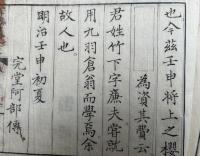 也今茲壬申將上之櫻
為資其費云
君姓竹下字廉夫嘗就
用九羽倉翁而學焉余
故人也
明治壬申初夏
完堂阿部